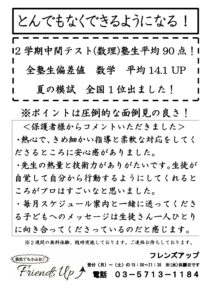 とんでもなくできるようになる！
２学期中間テスト(数理)塾生平均９０点！
全塾生偏差値　数学　平均 14.1 UP
夏の模試　全国１位出ました！
※ポイントは圧倒的な面倒見の良さ！
＜保護者様からコメントいただきました＞
・熱心で、きめ細かい指導と柔軟な対応をしてく
ださるところに安心感がありました。
・先生の熱量と技術力がありがたいです。生徒が
自覚して自分から行動するようにしてくれると
ころがプロはすごいなと思いました。
・毎月スケジュール案内と一緒に送ってくださ
る子どもへのメッセージは生徒さん一人ひとり
に向き合ってくださっているのだと感じます。
※２週間の無料体験、随時実施しております。ご連絡お待ちしております。
フレンズアップ
受付（月）～（土）の
Friends Up
電話　０３－５７１３－１１８４